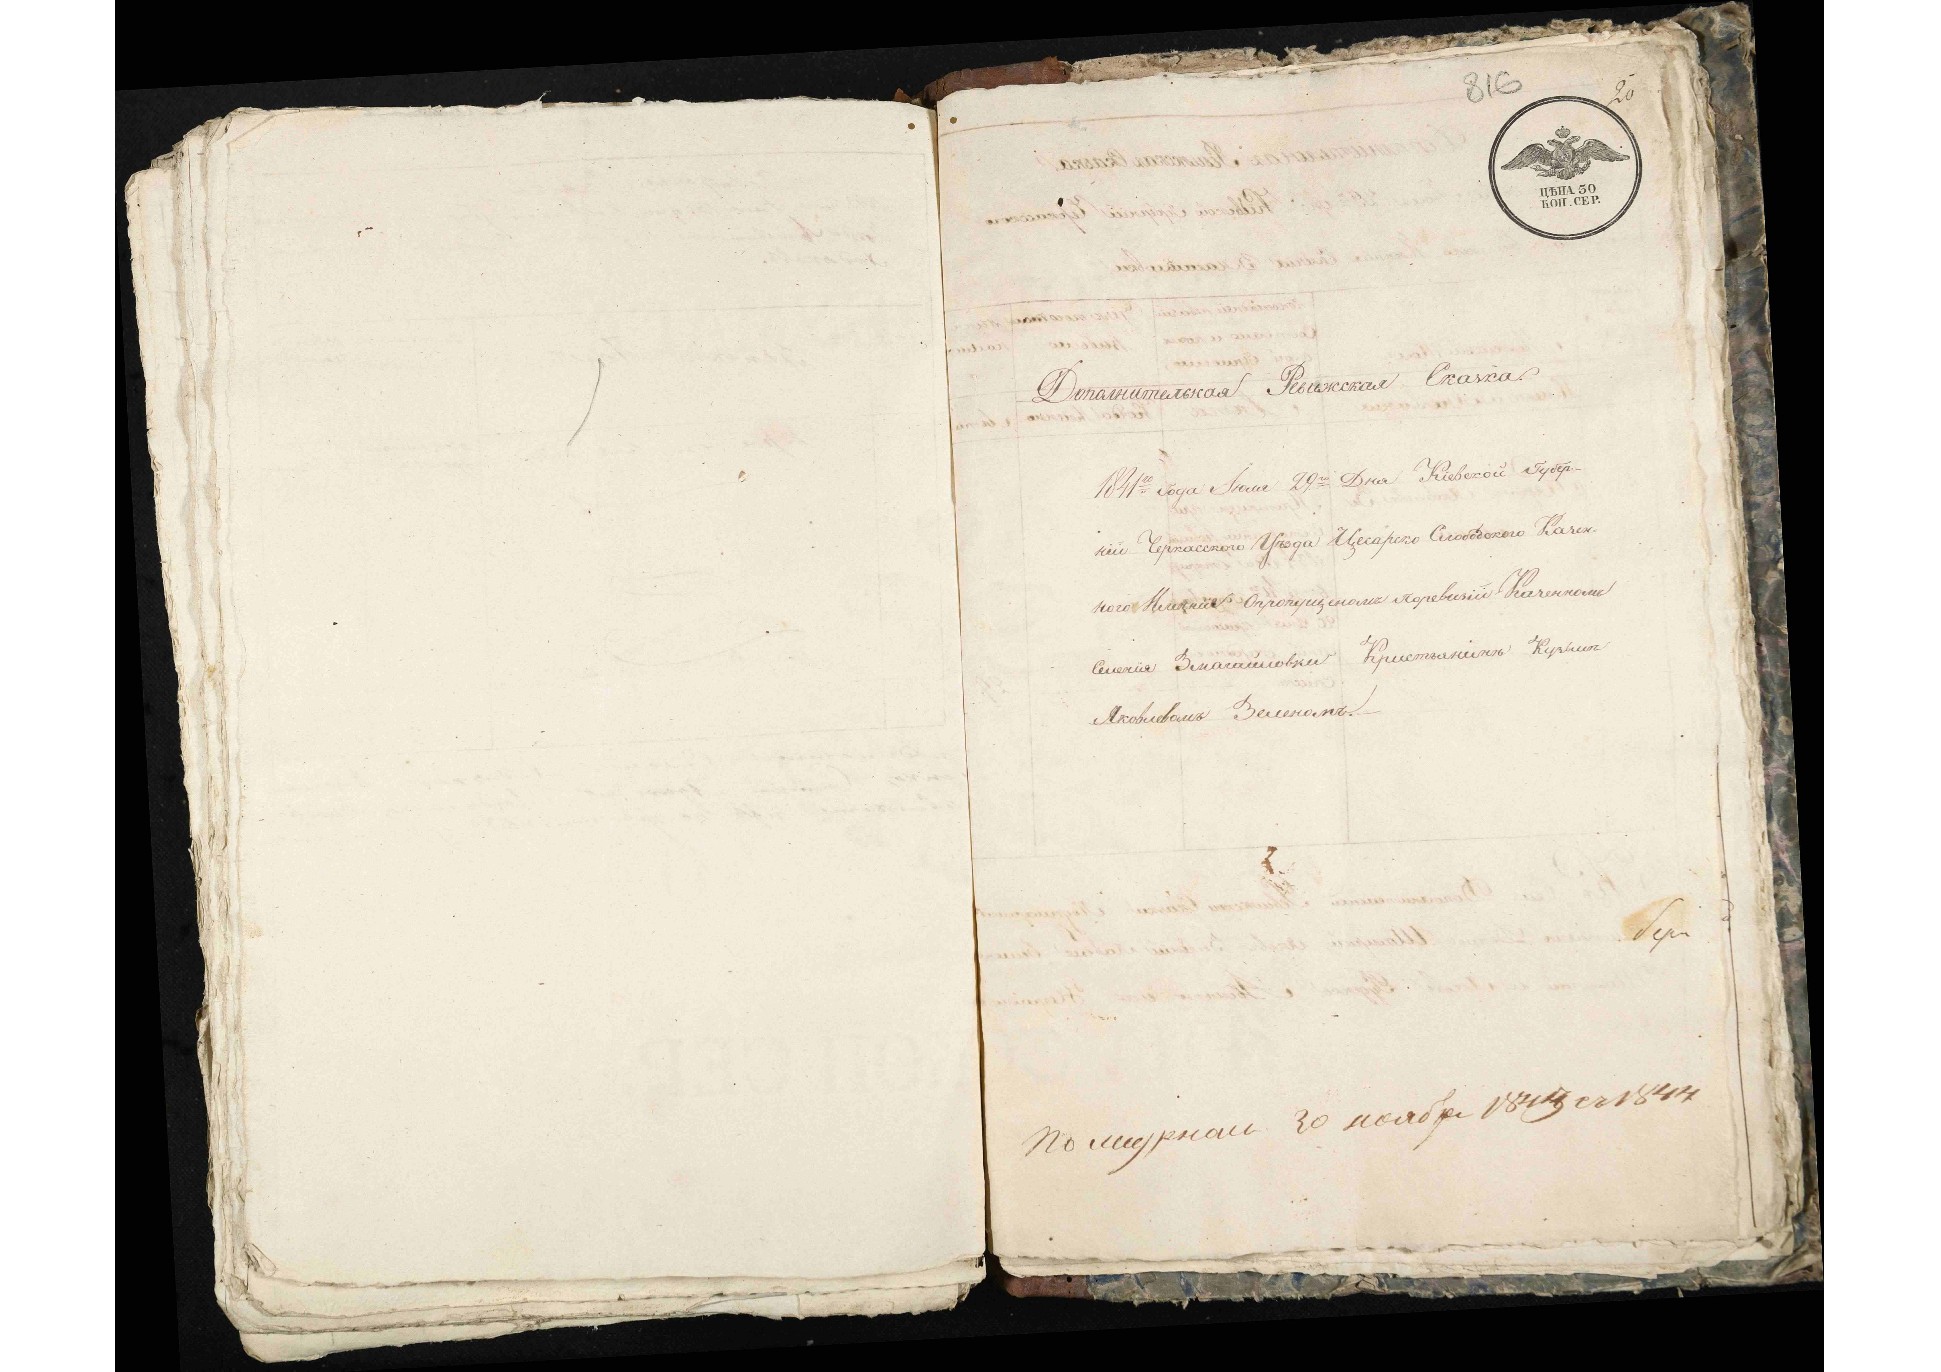 816
20
ЦѢНА 50
КОП. СЕР.
Дополнительная Ревижская Сказка
1841го Года Июля 29го Дня Кіевской Губер-
ніи Черкасского Уѣзда Цесарско Слободского Казен-
ного Имѣнія Опропущеномъ поревизіи Казенномъ
Селенія Змагайловки Кристьянинѣ Кузьмѣ
Яковлевомъ Зеленомъ.
По журналу 30 ноября 1843 ст 1844